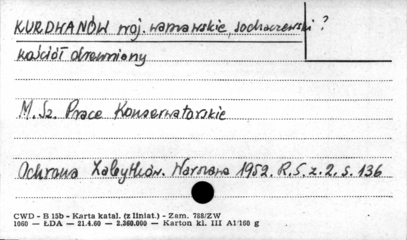 KURDWANÓW woj. warszawskie, sochaczewski ?
kościół drewniany
M. Sz. Prace Konserwatorskie
Ochrona Zabytków. Warszawa 1952. R. 5. z. 2. s. 136
CWD - B 15b - Karta katal. (z liniat.) - Zam. 788/ZW
1060 — ŁDA — 21.4.60 — 2.360.000 — Karton kl. III A1 160 g